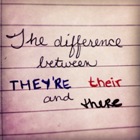 The difference
between
THEY'RE their
and there